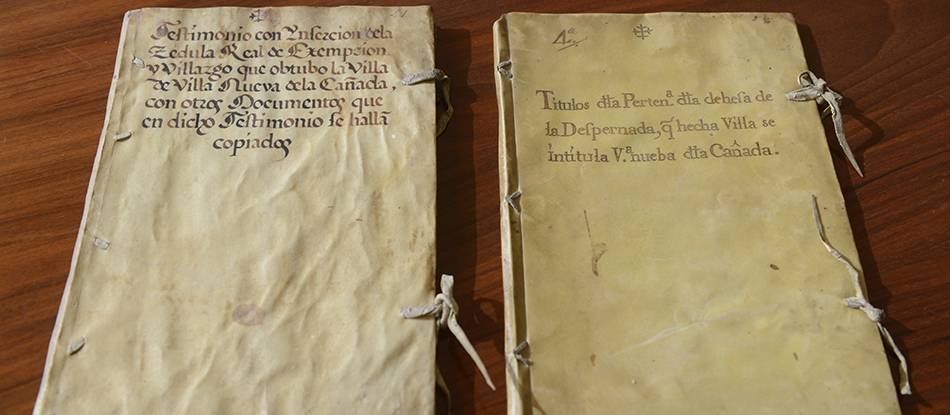 Testimonio con Ynsercion dela
Zedula Real de Exempcion
y Villazgo que obtubo la Villa
de Villa Nueva dela Cañada,
con otros Documentos que
en dicho Testimonio se hallā
copiados
4ª
Titulos dta Pertenª dta dehesa de
la Despernada, q̃ hecha Villa se
íntítula Vª nueba dta Cañada.